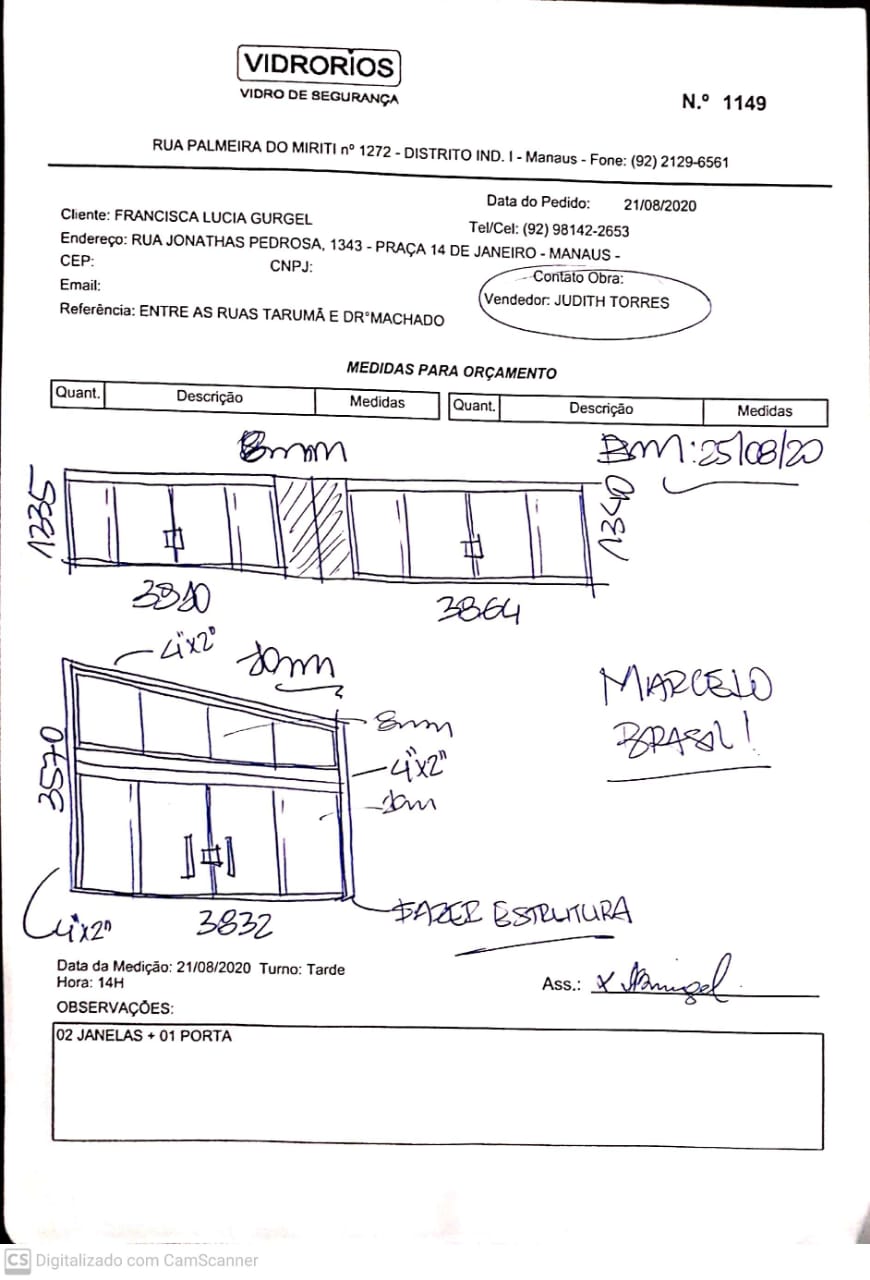 VIDRORIOS
VIDRO DE SEGURANÇA
N.º 1149
RUA PALMEIRA DO MIRITI nº 1272 - DISTRITO IND. I - Manaus - Fone: (92) 2129-6561
Data do Pedido: 21/08/2020
Cliente: FRANCISCA LUCIA GURGEL
Tel/Cel: (92) 98142-2653
Endereço: RUA JONATHAS PEDROSA, 1343 - PRAÇA 14 DE JANEIRO - MANAUS -
CEP: CNPJ:
Contato Obra:
Email:
Vendedor: JUDITH TORRES
Referência: ENTRE AS RUAS TARUMÃ E DR°MACHADO
MEDIDAS PARA ORÇAMENTO
Quant. Descrição Medidas Quant. Descrição Medidas
8mm
BM: 25/08/20
1335
1340
3810
3864
4"x2"
10mm
MARCELO
BRASIL!
8mm
4"x2"
3570
10m
FAZER ESTRUTURA
4"x2"
3832
Data da Medição: 21/08/2020 Turno: Tarde
Hora: 14H
Ass.: x
OBSERVAÇÕES:
02 JANELAS + 01 PORTA
CS Digitalizado com CamScanner